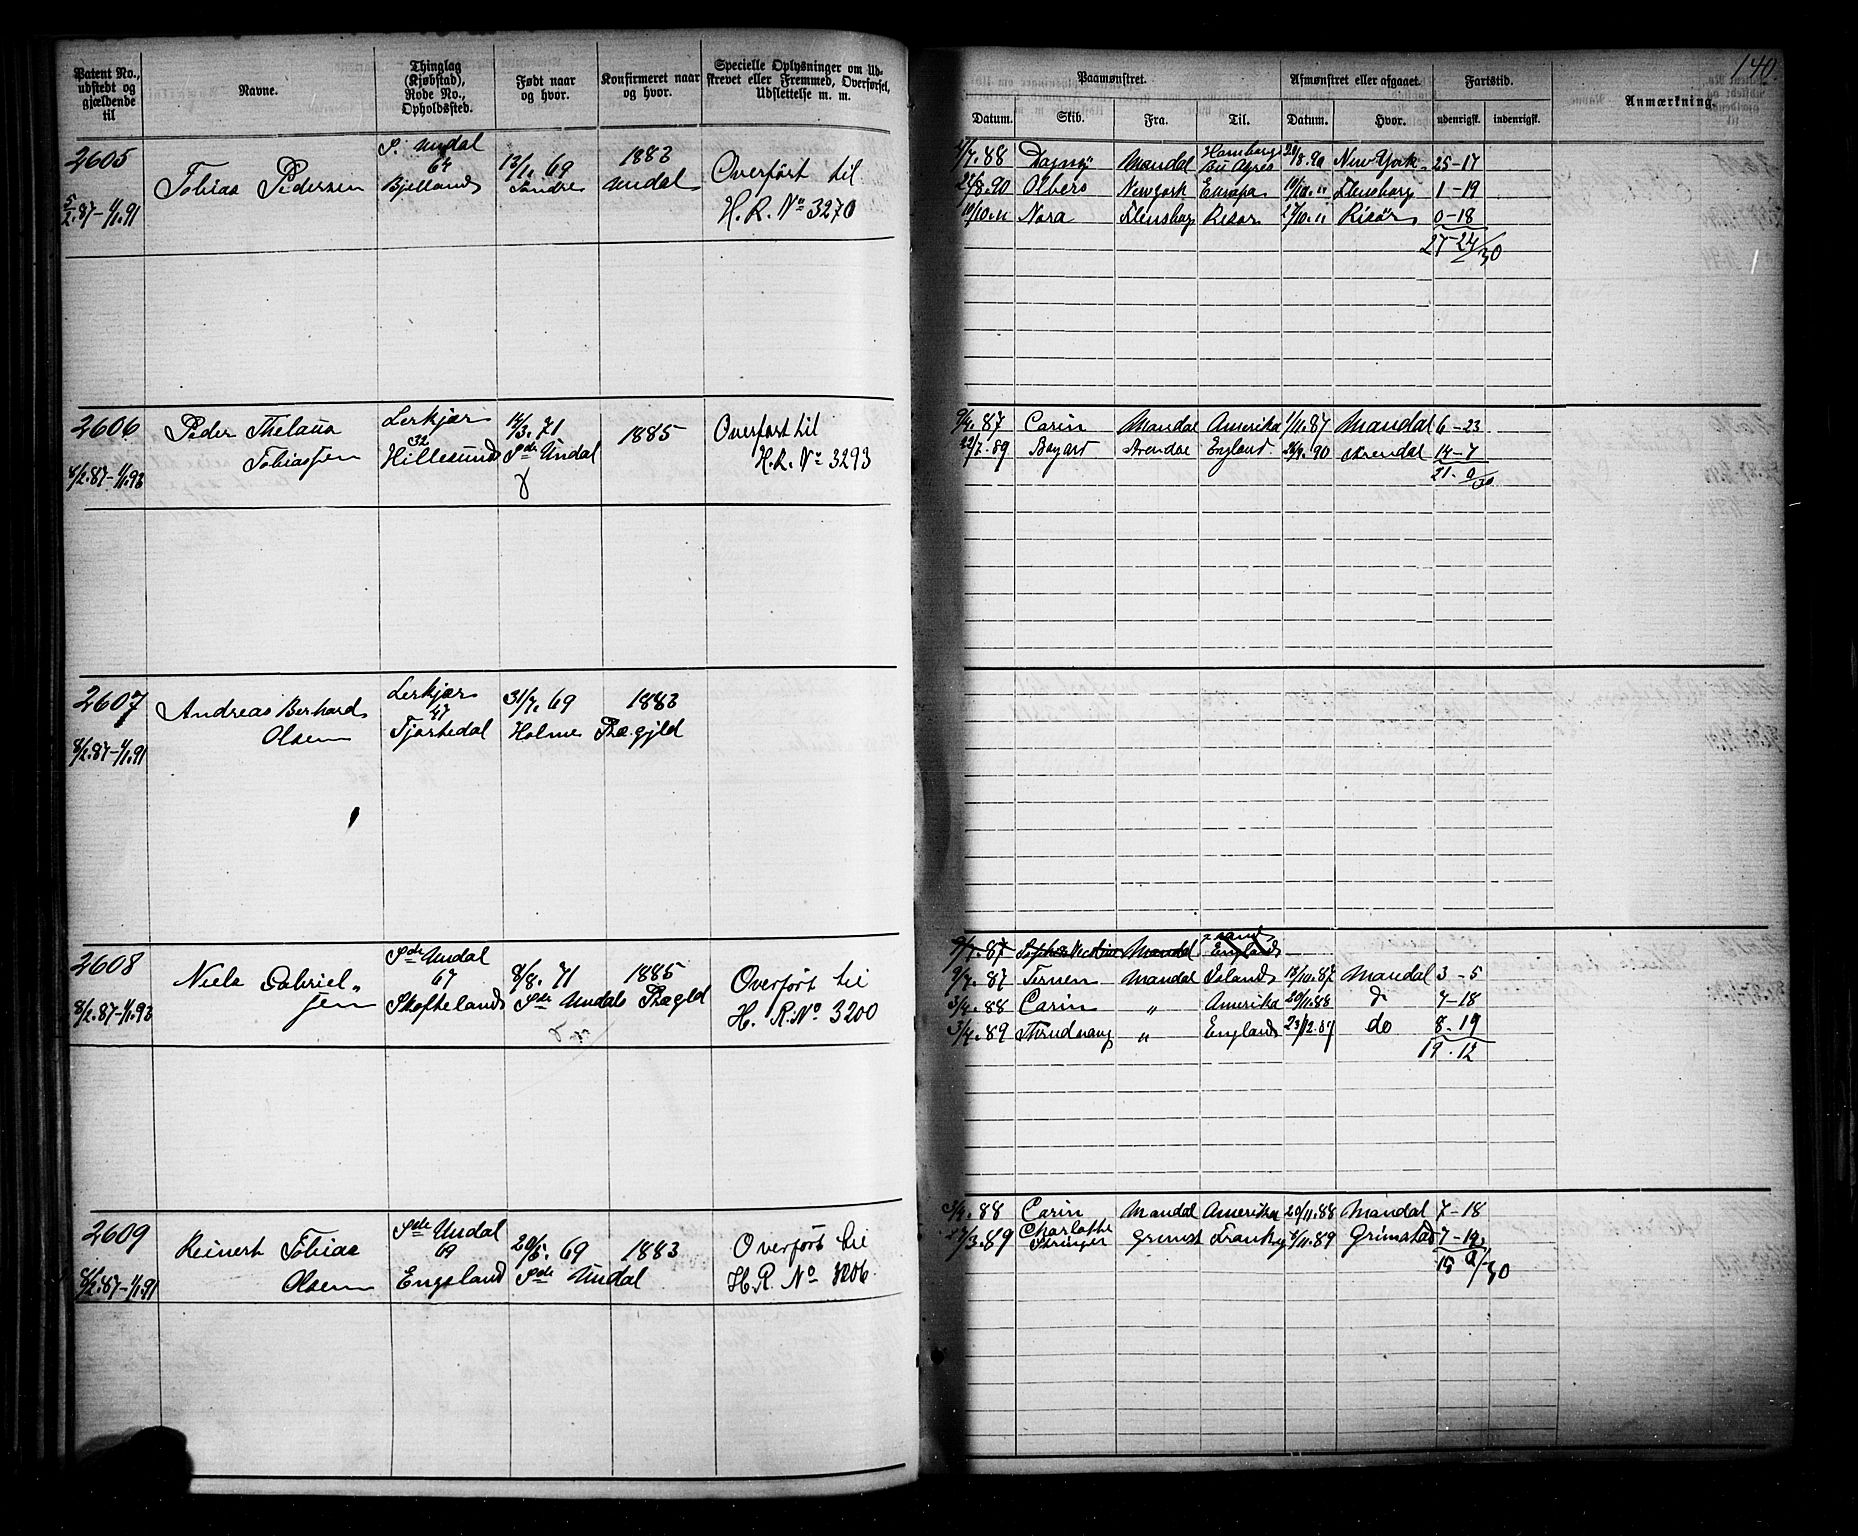 Patent No., udstedt og gjældende til
Navne.
Thinglag (Kjøbstad), Rode No., Opholdssted.
Født naar og hvor.
Konfirmeret naar og hvor.
Specielle Oplysninger om Udskrevet eller Fremmed, Overførsel, Udslettelse m. m.
2605
5/2.87-1/1.91
Tobias Pedersen
S. Undal
64
Bjelland
13/1. 69
Søndre
1883
Undal
Overført til
H. R. No 3270
2606
8/2.87-1/1.93
Peder Thelaus
Tobiassen
Lerkjær
32
Hillesund
14/3. 71
Sdr Undal
1885
Overført til
H. R. No 3293
2607
8/2.87-1/1.91
Andreas Berhard
Olsen
Lerkjær
47
Tjøstedal
31/7. 69
Holme Præsgjeld
1883
2608
8/2.87-1/1.93
Niels Gabriel-
sen
Sdr Undal
67
Skofteland
8/8. 71
Sdr Undals Prægld
1885
Overført til
H. R. No 3200
2609
8/2.87-1/1.91
Reinert Tobias
Olsen
Sdr Undal
69
Engeland
20/5. 69
Sdr Undal
1883
Overført til
H. R. No 3206.
140.
Paamønstret.
Afmønstret eller afgaaet.
Fartstid.
Anmærkning.
Datum.
Skib.
Fra.
Til.
Datum.
Hvor.
udenrigsk.
indenrigsk.
4/7. 88 Dagny Mandal Hamburg Bu Ayres 20/8.90 New York 25-17
22/8.90 Olbers Newyork Europa 10/10. " Flensborg 1-19
10/10. " Nora Flensborg Risør 27/10. " Risør 0-18
27-24/30
9/4. 87 Carin Mandal Amerika 1/11.87 Mandal 6-23
22/7. 89 Bayard Arendal England 29/9. 90 Arendal 14-7
21. 0/30
9/7. 87 Mandal England
9/7. 87 Ternen Mandal Island 13/10.87 Mandal 3-5
3/4. 88 Carin " Amerika 20/11.88 do 7-18
3/4. 89 " England do 8. 19
19. 12
3/4. 88 Carin Mandal Amerika 20/11.88 Mandal 7-18
27/3.89 Charlotte Grimst Grimstad 7-19
15 7/30